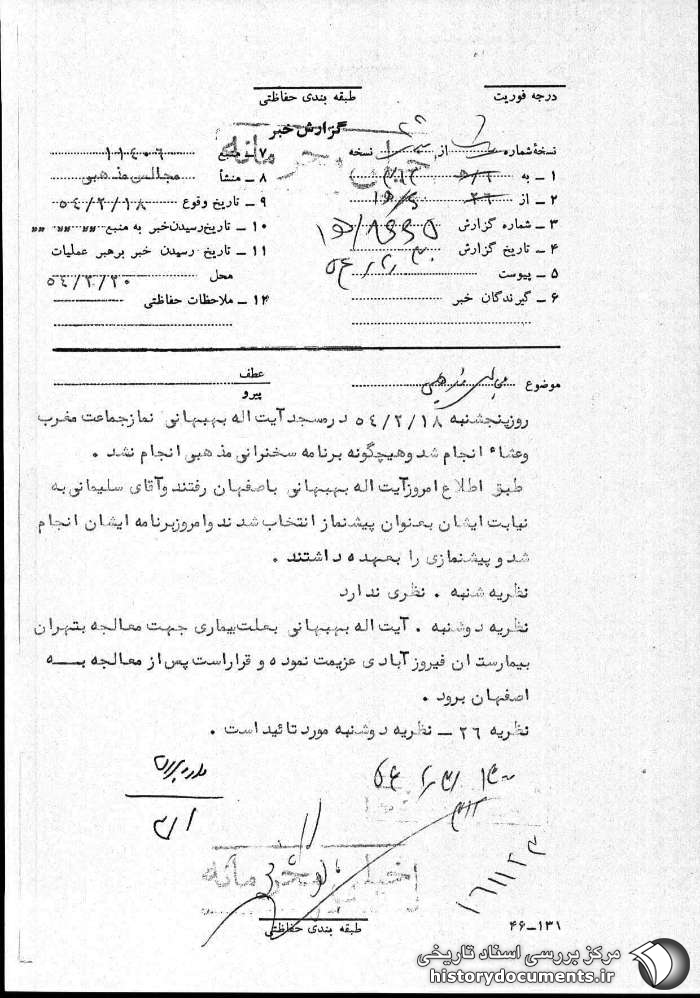 درجه فوریت
طبقه بندی حفاظتی
گزارش خبر
خیلی محرمانه
نسخهٔ شماره از نسخه
۱ ـ به ۳۱۲
۲ ـ از
۳ ـ شماره گزارش
۴ ـ تاریخ گزارش
۵ ـ پیوست
۶ ـ گیرندگان خبر
۷ ـ منبع ۱۱۴۰۶
۸ ـ منشأ مجالس مذهبی
۹ ـ تاریخ وقوع ۵۴/۲/۱۸
۱۰ ـ تاریخ رسیدن خبر به منبع " " "
۱۱ ـ تاریخ رسیدن خبر برهبر عملیات
محل ۵۴/۲/۲۰
۱۲ ـ ملاحظات حفاظتی
موضوع مجالس مذهبی
عطف
پیرو
روزپنجشنبه ۵۴/۲/۱۸ درمسجدآیت اله بهبهانی نمازجماعت مغرب
وعشاء انجام شد وهیچگونه برنامه سخنرانی مذهبی انجام نشد .
طبق اطلاع امروزآیت اله بهبهانی باصفهان رفتند وآقای سلیمانی به
نیابت ایشان بعنوان پیشنماز انتخاب شدند وامروزبرنامه ایشان انجام
شد و پیشنمازی را بعهده داشتند .
نظریه شنبه . نظری ندارد
نظریه دوشنبه . آیت اله بهبهانی بعلت بیماری جهت معالجه بتهران
بیمارستان فیروزآبادی عزیمت نموده و قراراست پس از معالجه بـــه
اصفهان برود .
نظریه ۲۶ ـ نظریه دوشنبه مورد تائید است .
خیلی محرمانه
طبقه بندی حفاظتی
۱۶۱۱۲۳
۴۶-۱۳۱
مرکز بررسی اسناد تاریخی
historydocuments.ir